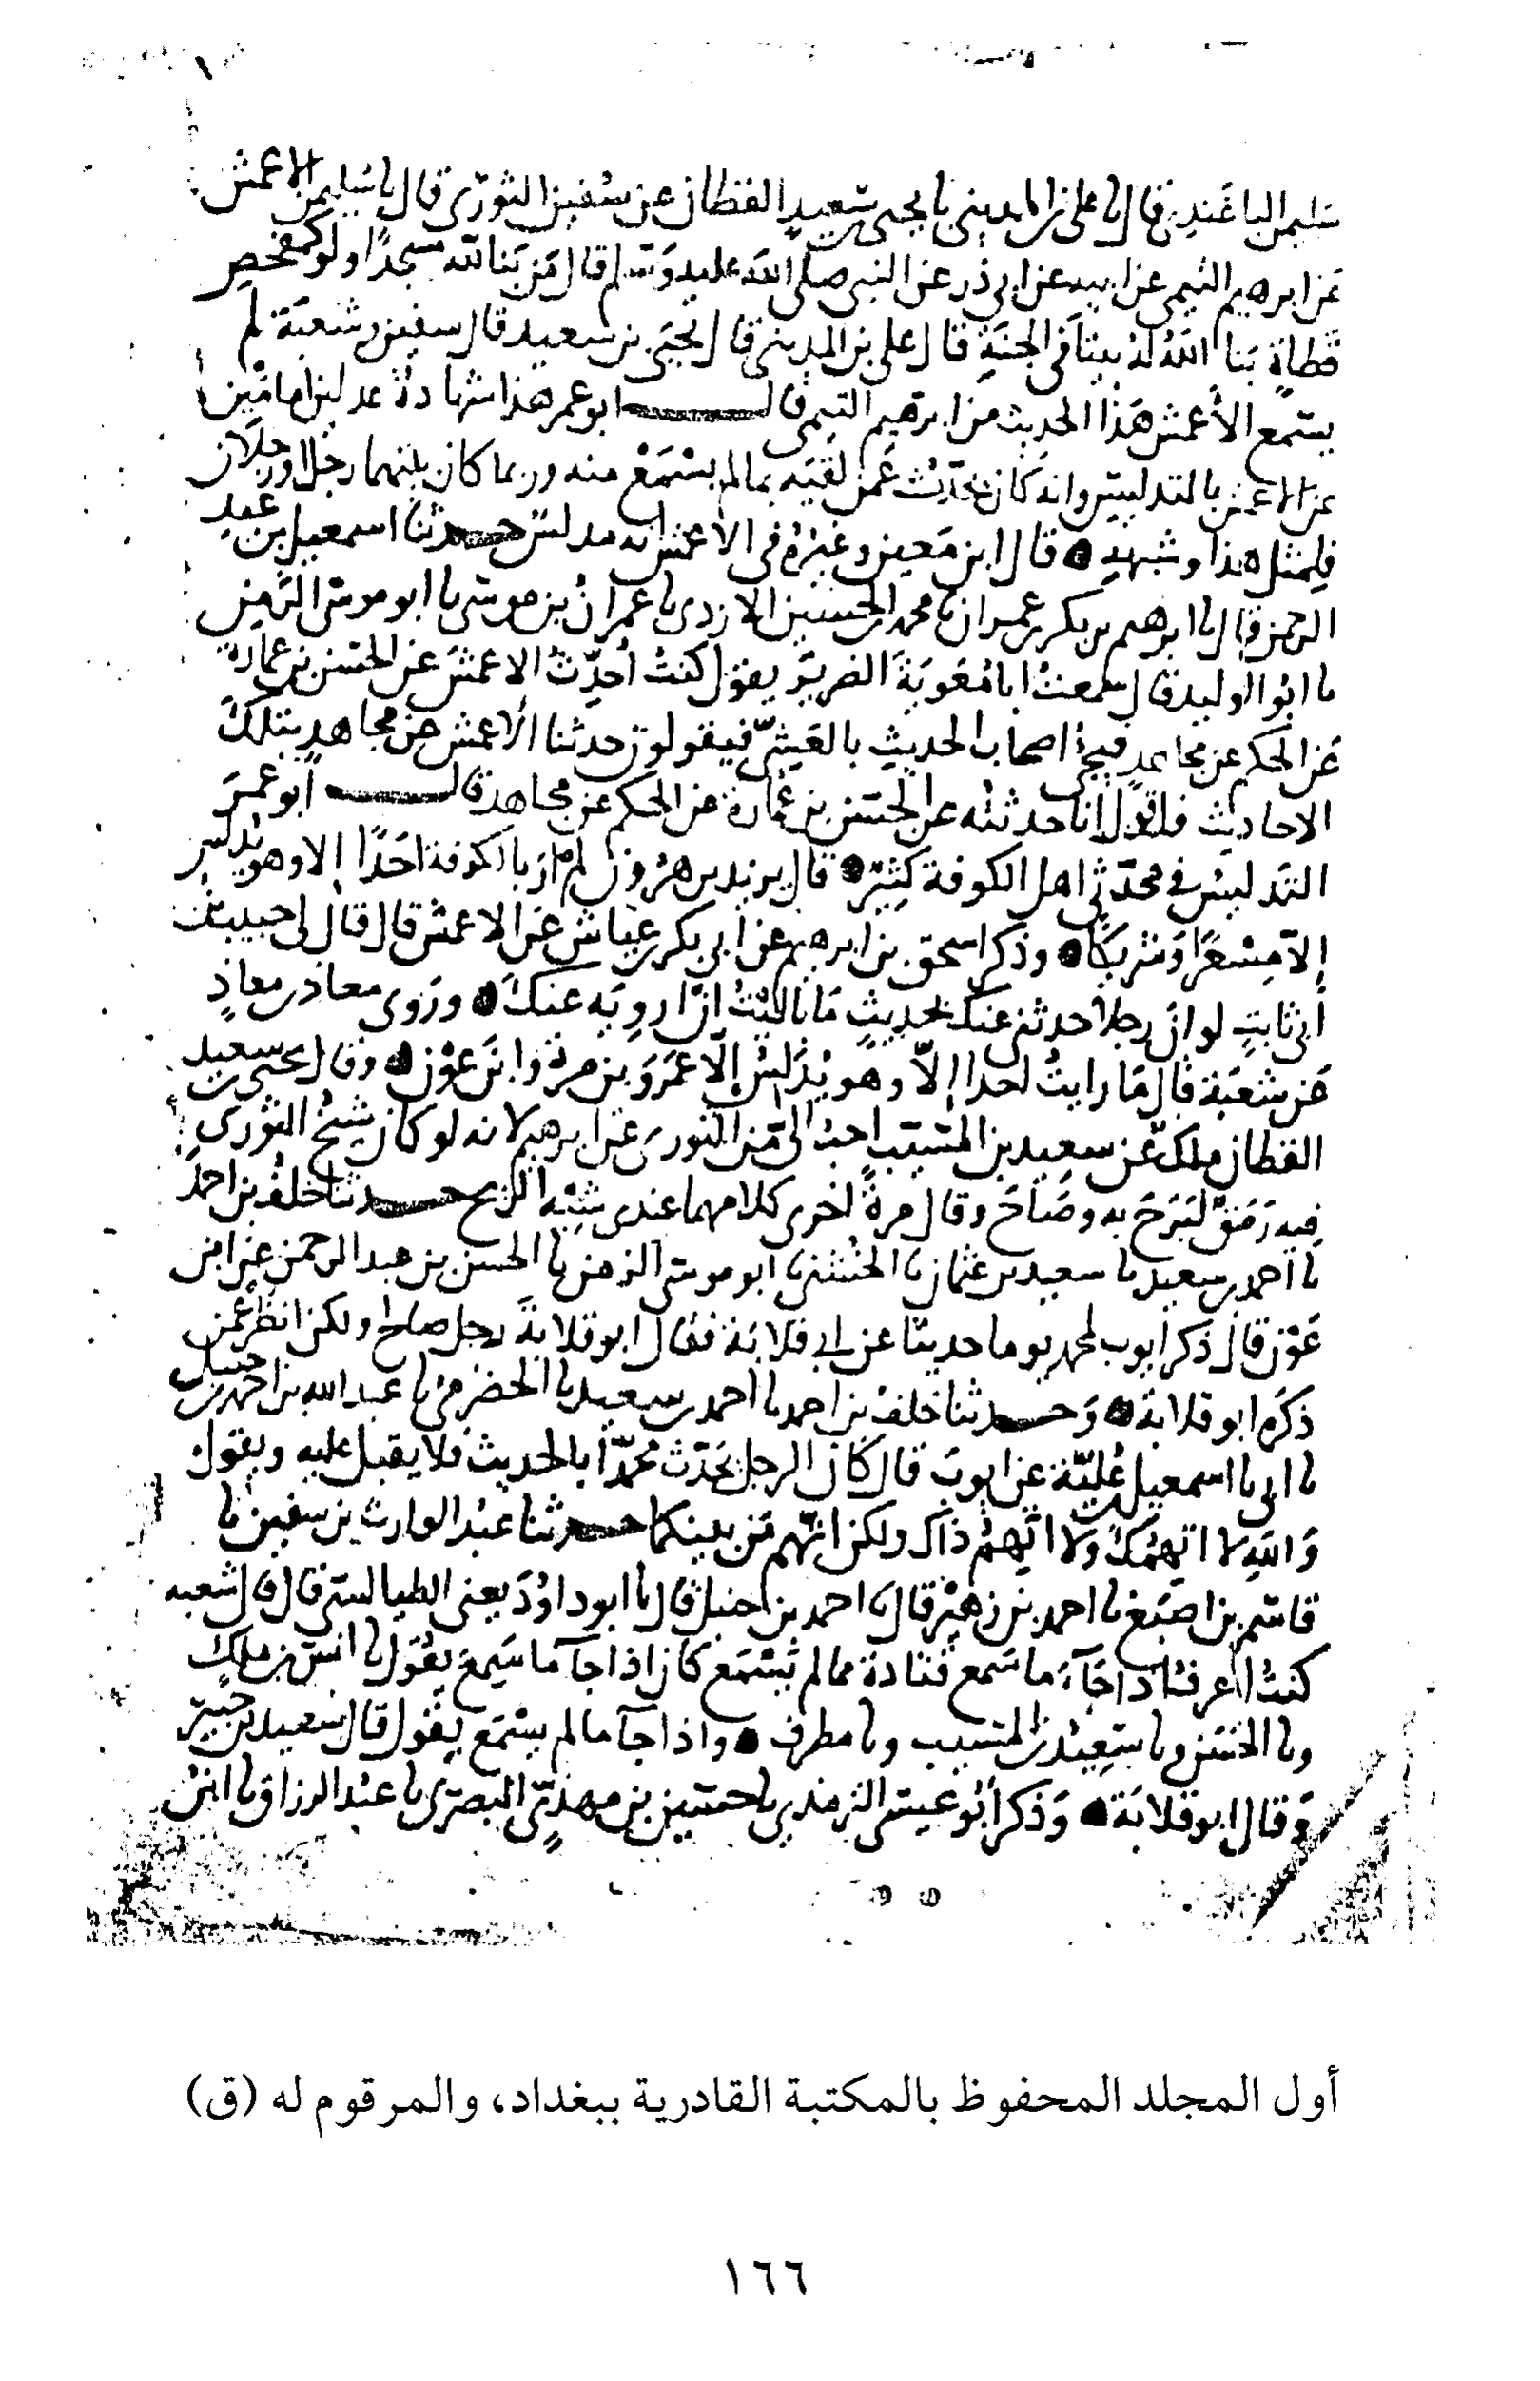 سليمن الباغندي قال نا علي بن المديني نا يحيى بن سعيد القطان عن سفين الثوري قال نا سليمن الاعمش
عن ابرهيم التيمي عن ابيه عن ابي ذر عن النبي صلى الله عليه وسلم قال من بنا لله مسجدا ولو كمفحص
قطاة بنا الله له بيتا في الجنة قال علي بن المديني قال يحيى بن سعيد قال سفين وشعبة لم
يسمع الأعمش هذا الحديث من ابرهيم التيمي قال ابو عمر هذا شهادة عدلين امامين
على الاعمش بالتدليس وانه كان يحدث عمن لقيه بما لم يسمع منه وربما كان بينهما رجل او رجلان
فلمثل هذا وشبهه ۝ قال ابن معين وغيره في الاعمش انه مدلس حدثنا اسمعيل بن عبد
الرحمن قال نا ابرهيم بن بكر بن عمران نا محمد بن الحسين الازدي نا عمران بن موسى نا ابو موسى الزمن
نا ابو الوليد قال سمعت ابا معوية الضرير يقول كنت أحدث الاعمش عن الحسن بن عمارة
عن الحكم عن مجاهد فيجئ اصحاب الحديث بالعشي فيقولون حدثنا الأعمش عن مجاهد بتلك
الاحاديث فاقول انا حدثته عن الحسن بن عمارة عن الحكم عن مجاهد قال ابو عمر
التدليس في محدثي اهل الكوفة كثير ۝ قال يزيد بن هرون لم ار بالكوفة احدا الا وهو يدلس
إلا مسعرا وشريكا ۝ وذكر اسحق بن ابرهيم عن ابي بكر بن عياش عن الاعمش قال قال لي حبيب بن
أبي ثابت لو ان رجلا حدثني عنك بحديث ما باليت ان ارويه عنك ۝ وروى معاذ بن معاذ
عن شعبة قال ما رايت احدا إلا وهو يدلس إلا عمرو بن مرة وابن عون ۝ وقال يحيى بن سعيد
القطان ملك عن سعيد بن المسيب احب الي من الثوري عن ابرهيم لانه لو كان شيخ الثوري
فيه رمق لبرح به وصاح وقال مرة أخرى كلامهما عندي شبه الريح حدثنا خلف بن احمد
نا احمد بن سعيد نا سعيد بن عثمان نا الخشني نا ابو موسى الزمن نا الحسن بن عبد الرحمن عن ابن
عون قال ذكر ايوب لمحمد يوما حديثا عن ابي قلابة فقال ابو قلابة رجل صالح ولكن انظر عمن
ذكره ابو قلابة ۝ وحدثنا خلف بن احمد نا احمد بن سعيد نا الحضرمي نا عبد الله بن احمد بن حنبل
نا ابي نا اسمعيل بن علية عن ايوب قال كان الرجل يحدث محمدا بالحديث فلا يقبل عليه ويقول
والله لا اتهمك ولا اتهم ذاك ولكن اتهم من بينكما حدثنا عبد الوارث بن سفين نا
قاسم بن اصبغ نا احمد بن زهير قال نا احمد بن حنبل قال نا ابو داود يعني الطيالسي قال قال شعبه
كنت اعرف اذا جاء ما سمع قتادة مما لم يسمع كان اذا جآ ما سمع يقول نا انس بن ملك
ونا الحسن ونا سعيد بن المسيب ونا مطرف ۝ واذا جآ ما لم يسمع يقول قال سعيد بن جبير
وقال ابو قلابة ۝ وذكر أبو عيسى الترمذي نا حسين بن مهدي البصري نا عبد الرزاق نا ابن
أول المجلد المحفوظ بالمكتبة القادرية ببغداد، والمرقوم له (ق)
١٦٦